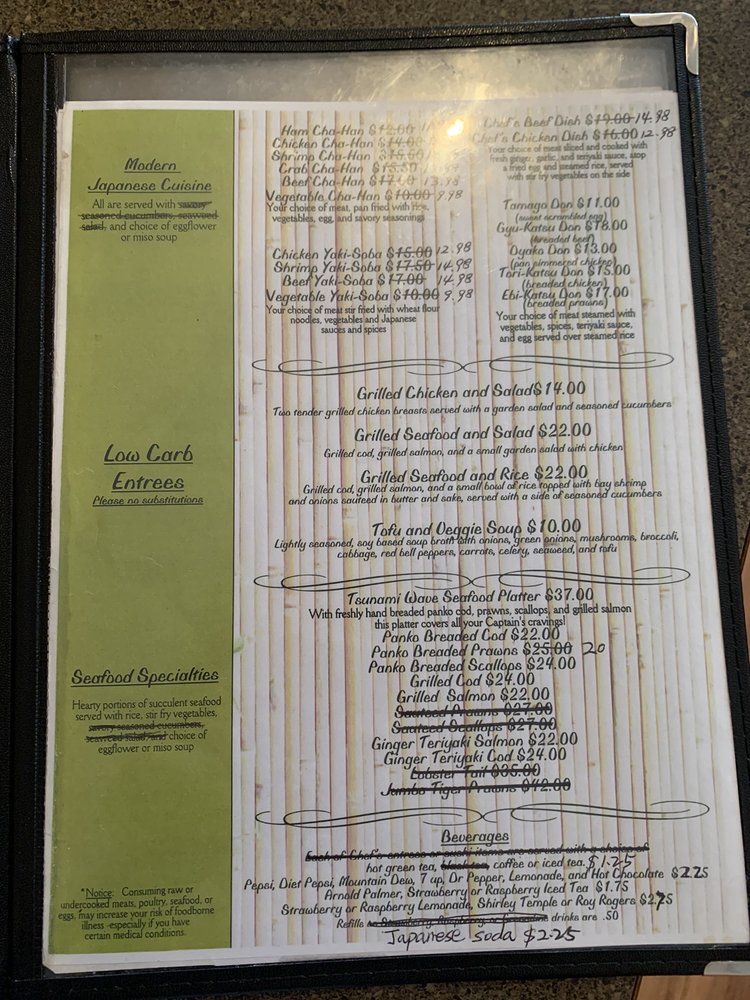 Modern
Japanese Cuisine
All are served with savory
seasoned cucumbers, seaweed
salad, and choice of eggflower
or miso soup
Ham Cha-Han $12.00
Chicken Cha-Han $14.00
Shrimp Cha-Han $15.50
Crab Cha-Han $15.50
Beef Cha-Han $17.00 13.98
Vegetable Cha-Han $10.00 9.98
Your choice of meat, pan fried with rice,
vegetables, egg, and savory seasonings
Chicken Yaki-Soba $15.00 12.98
Shrimp Yaki-Soba $17.50 14.98
Beef Yaki-Soba $17.00 14.98
Vegetable Yaki-Soba $10.00 9.98
Your choice of meat stir fried with wheat flour
noodles, vegetables and Japanese
sauces and spices
Chef's Beef Dish $19.00 14.98
Chef's Chicken Dish $16.00 12.98
Your choice of meat sliced and cooked with
fresh ginger, garlic, and teriyaki sauce, atop
a fried egg and steamed rice, served
with stir fry vegetables on the side
Tamago Don $11.00
(sweet scrambled egg)
Gyu-Katsu Don $18.00
(breaded beef)
Oyako Don $13.00
(pan simmered chicken)
Tori-Katsu Don $15.00
(breaded chicken)
Ebi-Katsu Don $17.00
(breaded prawns)
Your choice of meat steamed with
vegetables, spices, teriyaki sauce,
and egg served over steamed rice
Low Carb
Entrees
Please no substitutions
Grilled Chicken and Salad$14.00
Two tender grilled chicken breasts served with a garden salad and seasoned cucumbers
Grilled Seafood and Salad $22.00
Grilled cod, grilled salmon, and a small garden salad with chicken
Grilled Seafood and Rice $22.00
Grilled cod, grilled salmon, and a small bowl of rice topped with bay shrimp
and onions sauteed in butter and sake, served with a side of seasoned cucumbers
Tofu and Veggie Soup $10.00
Lightly seasoned, soy based soup broth with onions, green onions, mushrooms, broccoli,
cabbage, red bell peppers, carrots, celery, seaweed, and tofu
Seafood Specialties
Hearty portions of succulent seafood
served with rice, stir fry vegetables,
savory seasoned cucumbers,
seaweed salad, and choice of
eggflower or miso soup
Tsunami Wave Seafood Platter $37.00
With freshly hand breaded panko cod, prawns, scallops, and grilled salmon
this platter covers all your Captain's cravings!
Panko Breaded Cod $22.00
Panko Breaded Prawns $25.00 20
Panko Breaded Scallops $24.00
Grilled Cod $24.00
Grilled Salmon $22.00
Sauteed Prawns $27.00
Sauteed Scallops $27.00
Ginger Teriyaki Salmon $22.00
Ginger Teriyaki Cod $24.00
Lobster Tail $35.00
Jumbo Tiger Prawns $42.00
Beverages
Each of Chef's entrees or sushi items are served with a choice of
hot green tea, black tea, coffee or iced tea. $1.25
Pepsi, Diet Pepsi, Mountain Dew, 7 up, Dr Pepper, Lemonade, and Hot Chocolate $2.25
Arnold Palmer, Strawberry or Raspberry Iced Tea $1.75
Strawberry or Raspberry Lemonade, Shirley Temple or Roy Rogers $2.75
Refills drinks are .50
Japanese soda $2.25
*Notice: Consuming raw or
undercooked meats, poultry, seafood, or
eggs, may increase your risk of foodborne
illness -especially if you have
certain medical conditions.